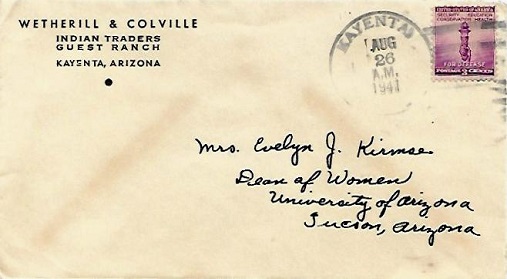 WETHERILL & COLVILLE
INDIAN TRADERS
GUEST RANCH
KAYENTA, ARIZONA
KAYENTA
AUG
26
A.M.
1941
SECURITY EDUCATION
CONSERVATION HEALTH
FOR DEFENSE
POSTAGE 3 CENTS
Mrs. Evelyn J. Kirmse
Dean of Women
University of Arizona
Tucson, Arizona